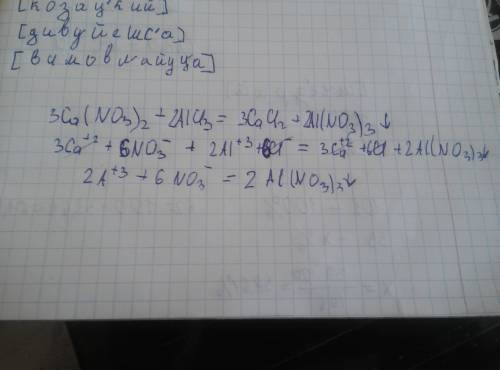 [козац'кий]
[дивуйешс'а]
[вимовлайуца]
3Ca(NO₃)₂ + 2AlCl₃ = 3CaCl₂ + 2Al(NO₃)₃↓
3Ca⁺² + 6NO₃⁻ + 2Al⁺³ + 6Cl⁻ = 3Ca⁺² + 6Cl + 2Al(NO₃)₃↓
2A⁺³ + 6NO₃⁻ = 2Al(NO₃)₃↓